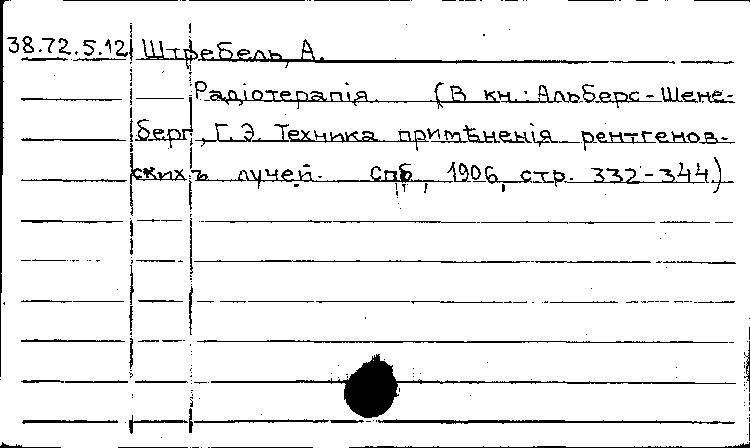 38.72.5.12 Штребель, А.
Радіотерапія. (В кн.: Альберс-Шене-
берг, Г. Э. Техника примѣненія рентгенов-
скихъ лучей. Спб, 1906, стр. 332-344.)